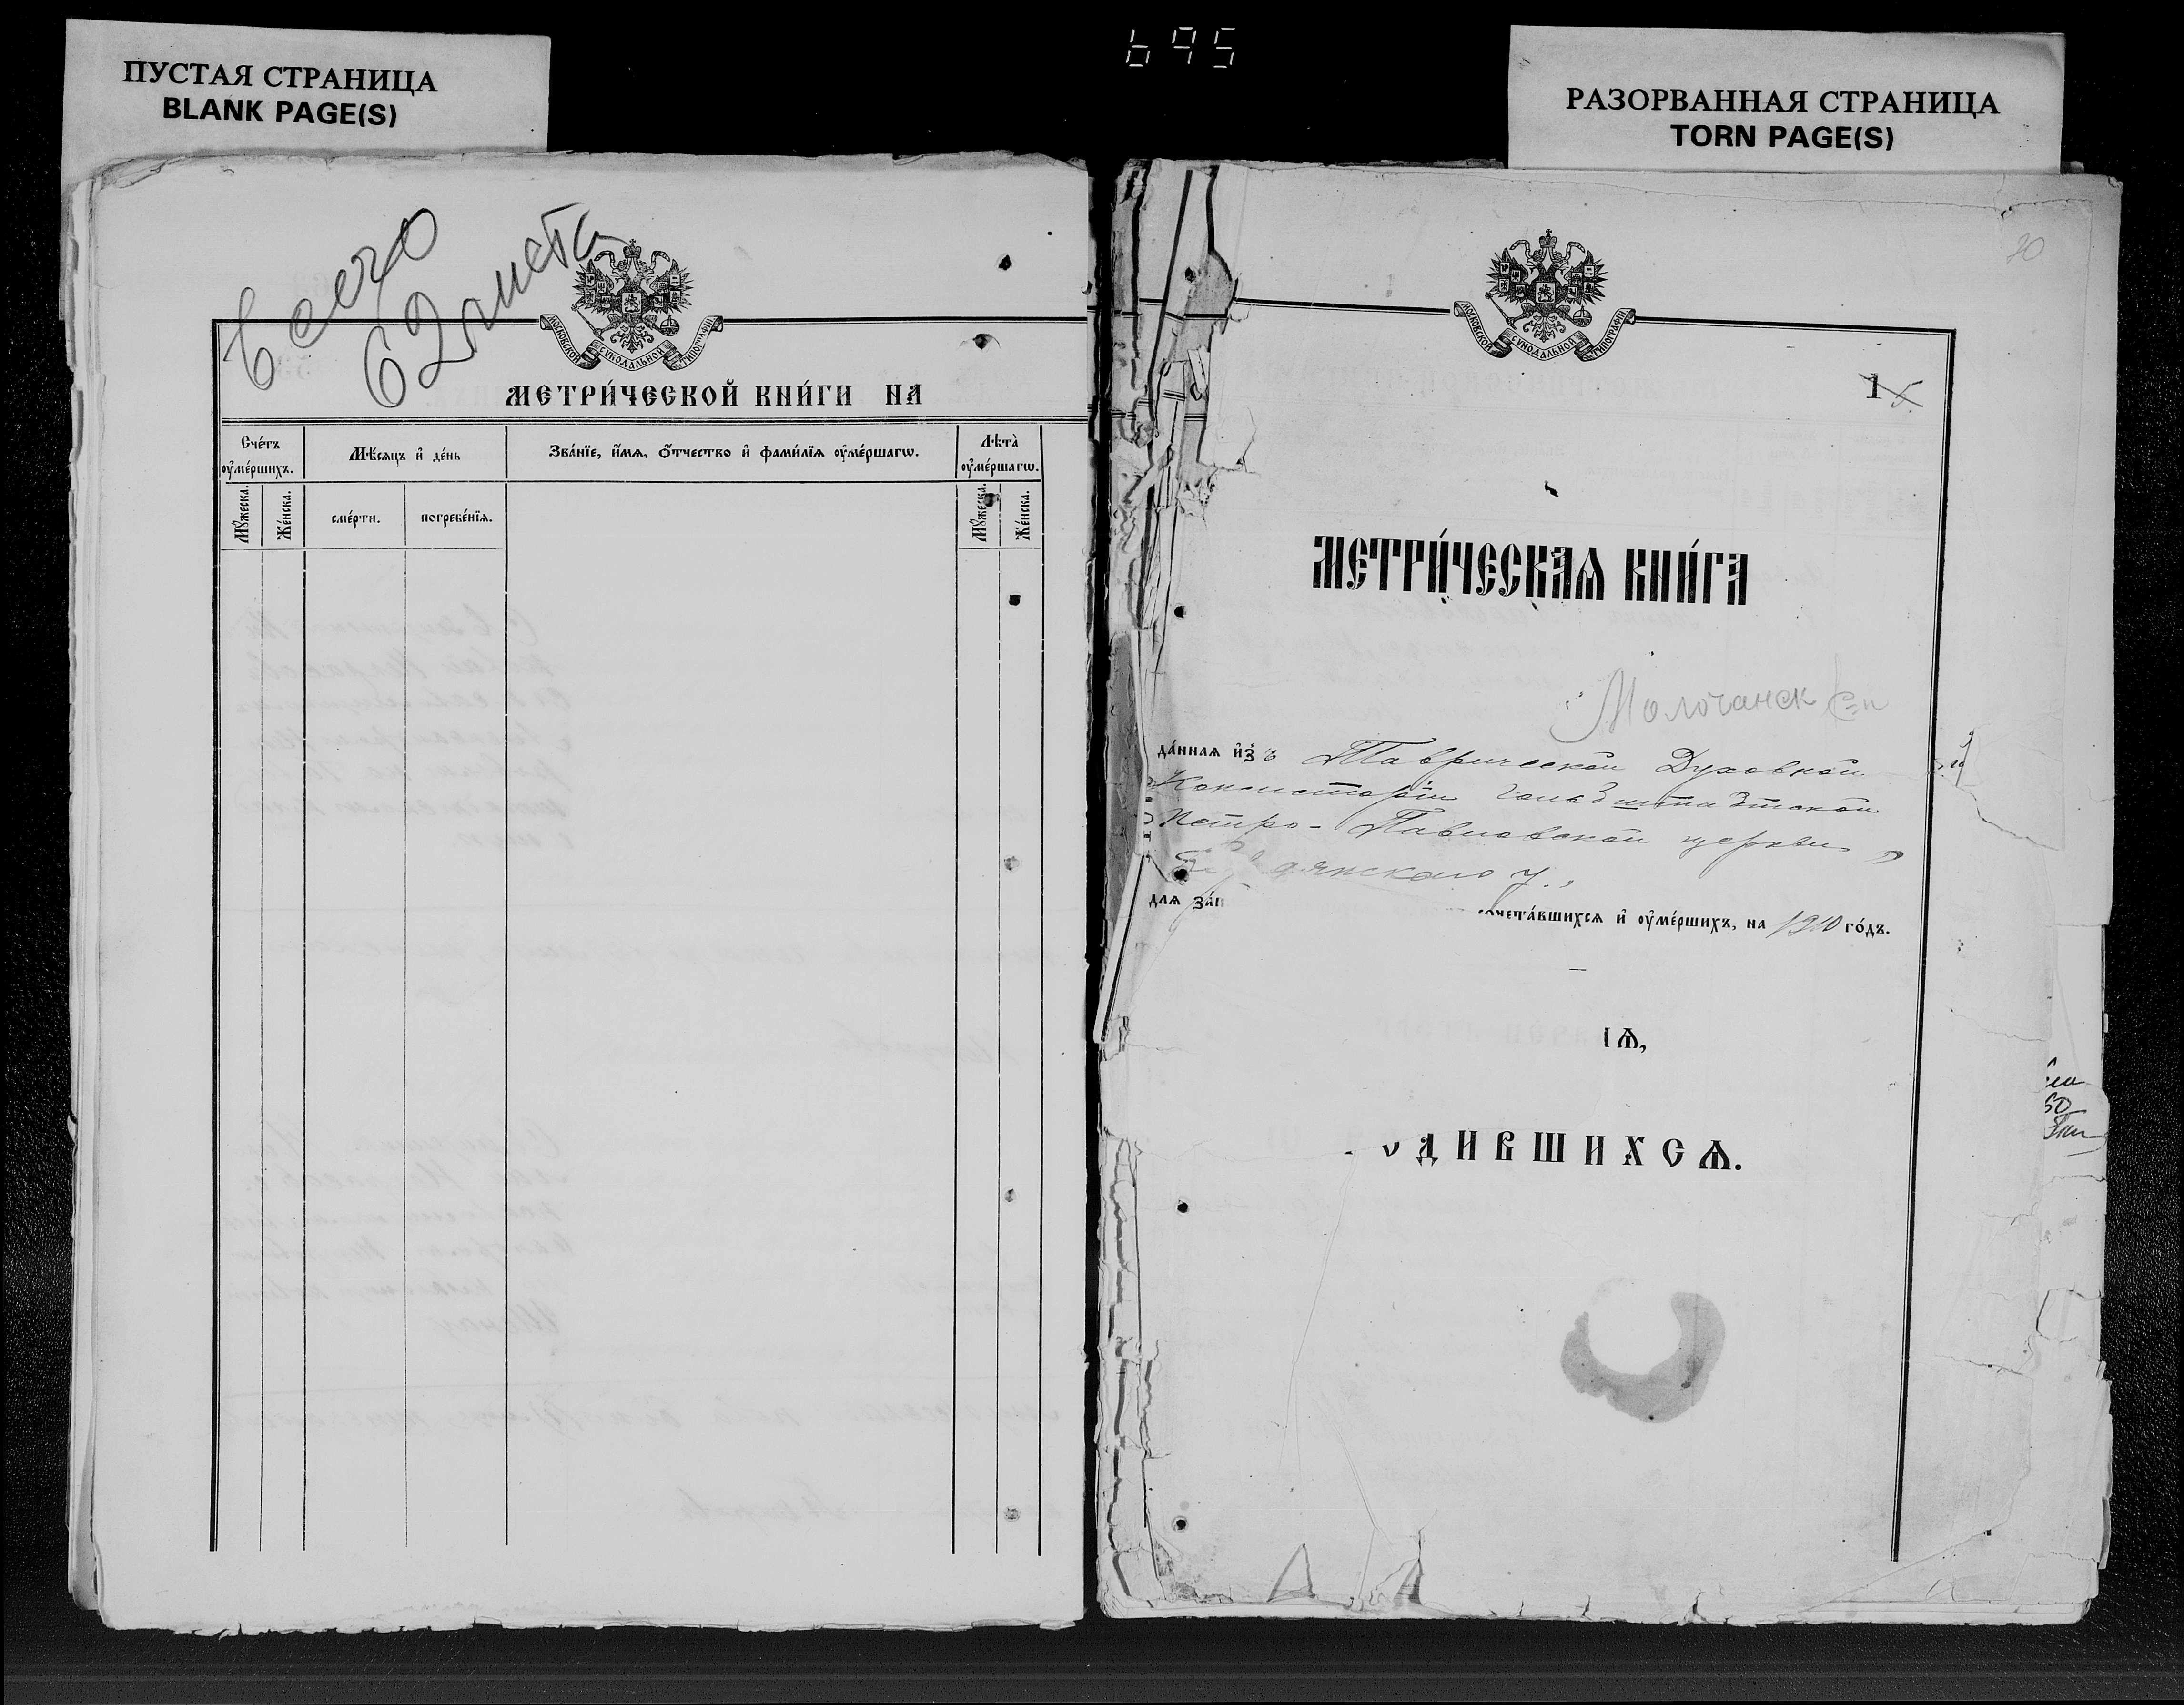 695
ПУСТАЯ СТРАНИЦА
BLANK PAGE(S)
РАЗОРВАННАЯ СТРАНИЦА
TORN PAGE(S)
Всего
62 листа
МОСКОВСКОЙ СѴНОДАЛЬНОЙ ТИПОГРАФІИ
МЕТРИ́ЧЕСКОЙ КНИ́ГИ НА
Сче́тъ ᲂу҆ме́ршихъ.
Мѣ́сяцъ и҆ де́нь
Зва́нїе, и҆́мѧ, ѻ҆́тчество и҆ фами́лїѧ ᲂу҆ме́ршагѡ.
Лѣта̀ ᲂу҆ме́ршагѡ.
Мꙋ́жеска.
Же́нска.
сме́рти.
погребе́нїѧ.
Мꙋ́жеска.
Же́нска.
20
МОСКОВСКОЙ СѴНОДАЛЬНОЙ ТИПОГРАФІИ
1 5.
МЕТРИ́ЧЕСКАѦ КНИ́ГА
Молочанск
да́ннаѧ и҆зъ Таврической Духовной
Консисторіи Гальбштатской
Петро-Павловской церкви
Бердянскаго у.,
длѧ за́п сочета́вшихсѧ и҆ ᲂу҆ме́ршихъ, на 1910 го́дъ.
ІѦ,
ОДИВШИХСѦ.